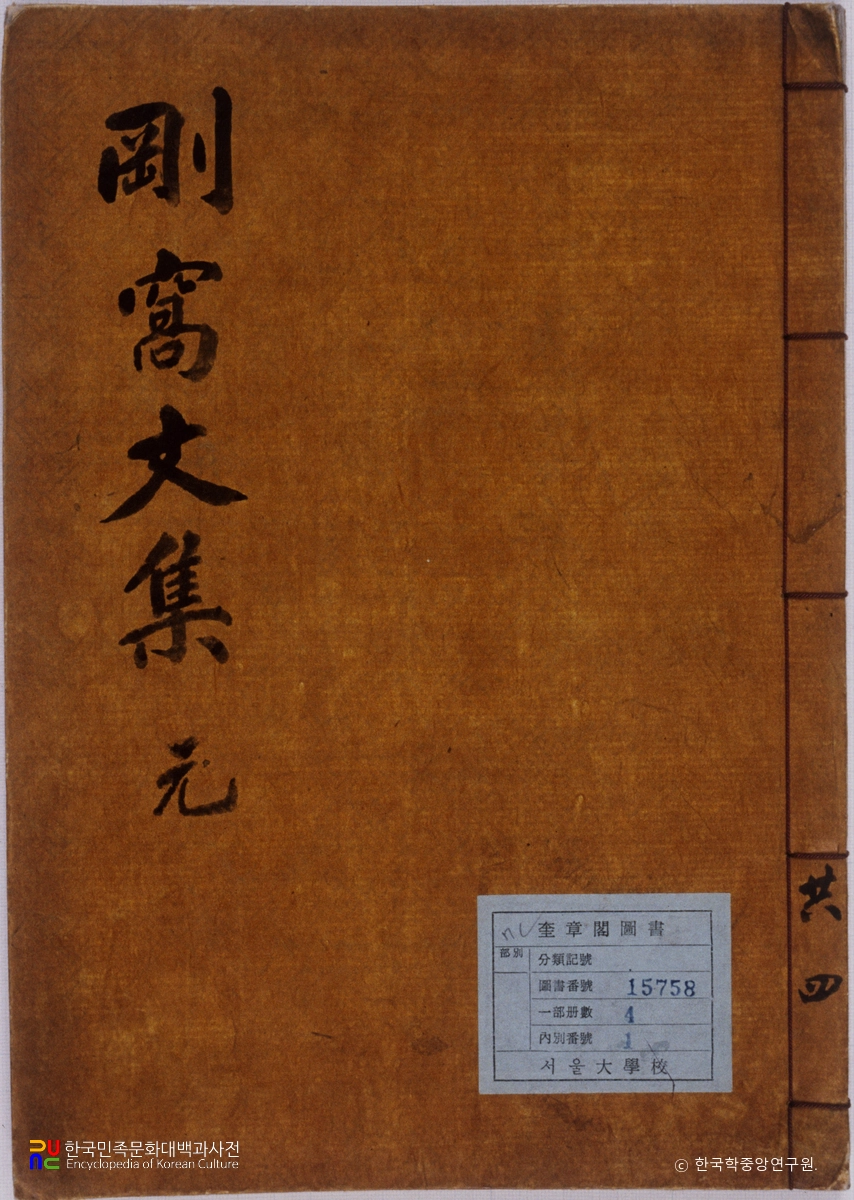 剛窩文集 元
共四
奎章閣圖書
部別
分類記號
圖書番號 15758
一部册數 4
內別番號 1
서울大學校
한국민족문화대백과사전
Encyclopedia of Korean Culture
© 한국학중앙연구원.